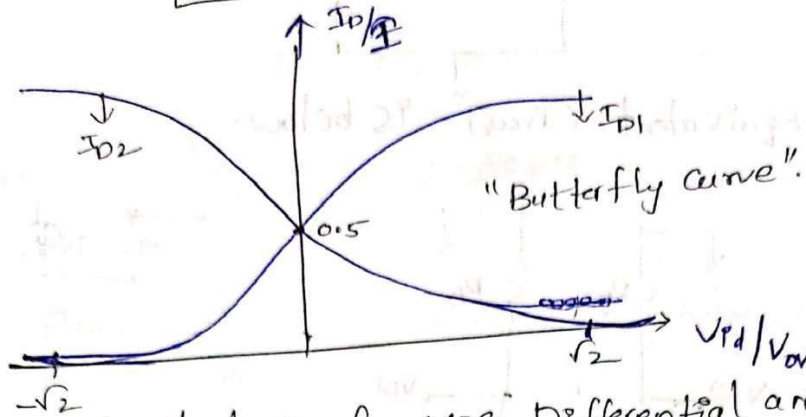 I_D/I
I_D2
I_D1
"Butterfly curve".
0.5
V_id/V_ov
-√2
√2
Differential an